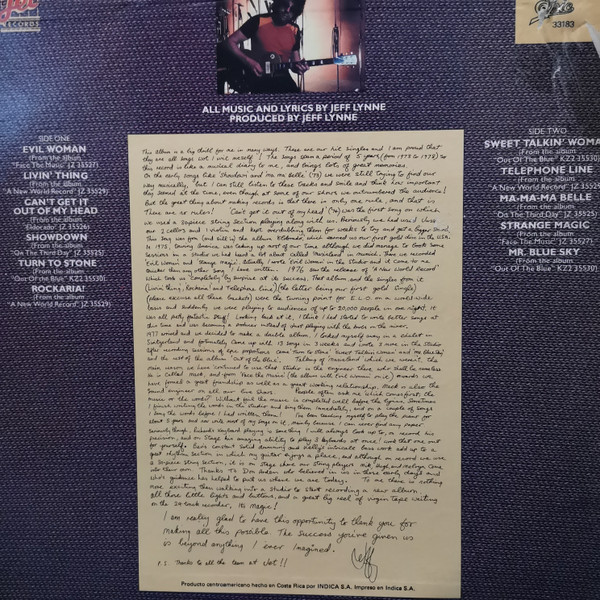 RECORDS
Epic
33183
ALL MUSIC AND LYRICS BY JEFF LYNNE
PRODUCED BY JEFF LYNNE
SIDE ONE
EVIL WOMAN
(From the album
"Face The Music" JZ 35527)
LIVIN' THING
(From the album
"A New World Record" JZ 35529)
CAN'T GET IT
OUT OF MY HEAD
(From the album
"Eldorado" JZ 35526)
SHOWDOWN
(From the album
"On The Third Day" JZ 35525)
TURN TO STONE
(From the album
"Out Of The Blue" KZ2 35530)
ROCKARIA!
(From the album
"A New World Record" JZ 35529)
This album is a big thrill for me in many ways. These are our hit singles and I am proud that
they are all songs wot I writ meself! The songs span a period of 5 years (from 1973 to 1978) so
this record is like a musical diary to me, and brings lots of great memories.
On the early songs like 'Showdown and ma ma Belle' (73) we were still trying to find our
way musically, but I can still listen to these tracks and smile and think how important
they seemed at the time, even though at some of our shows we outnumbered the audience!
But the great thing about making records is that there is only one rule, and that is
There are no rules! 'Can't get it out of my head' (74) was the first song on which
we used a
string section playing along with us. Normally we had used three
our 2 cellos and 1 violin and kept overdubbing them for weeks to try and get a bigger sound.
This song was for (and still is) the album Eldorado, which earned us our first gold disc in the U.S.A.
In 1975, touring America was taking up most of our time although we did manage to book some
sessions in a studio we had heard a lot about called Musicland in Munich. There we recorded
'Evil Woman' and 'Strange Magic'. Actually I wrote Evil Woman in the studio and it came to me
quicker than any other song I have written. 1976 saw the release of 'A New World Record'
which took us completely by surprise at its success. That album and the singles from it
(Livin' thing, Rockaria! and Telephone line) (the latter being our first gold single)
(please excuse all these brackets) were the turning point for E.L.O. on a world-wide
basis and suddenly we were playing to audiences of up to 20,000 people in one night; it
was all pretty fantastic stuff! Looking back at it, I think I had started to write better songs at
this time and was becoming a producer instead of just playing with the knobs in the mixer.
1977 arrived and we decided to make a double album. I locked myself away in a chalet in
Switzerland and fortunately came up with 13 songs in 3 weeks and wrote 3 more in the studio.
After recording sessions of epic proportions came 'Turn to stone' 'Sweet Talkin' Woman' and 'Mr Blue Sky'
and the rest of the album 'Out of the Blue'. Talking of Musicland which we weren't, the
main reason we have continued to use that studio is the engineer there, who shall be nameless
so is called Mack, and from 'Face the music' (the album with Evil Woman on it) onwards we
have formed a great friendship as well as a great working relationship. Mack is also the
sound engineer on all our live shows. People often ask me which comes first; the
music or the words? Without fail the music is completed well before the lyrics. Sometimes
I finish writing the words in the studio and sing them immediately, and on a couple of songs
I sang the words before I had written them! I've been teaching myself to play the piano for
about 5 years and now write most of my songs on it, mainly because I can never find any paper!
Seriously though, Richard's keyboard playing is something I will always look up to, on record his
precision, and on stage his amazing ability to play 8 keyboards at once! work that one out
for yourselfs. Bev's constant solid drumming and Kelly's intricate bass work add up to a
great rhythm section in which my guitar enjoys a place, and although on record we use
a
string section, it is on stage where our string players Mik, Hugh and Melvyn come
into their own. Thanks to Don Arden who believed in us in those early days and
who's guidance has helped to put us where we are today. To me there is nothing
more exciting than walking into a studio to start recording a new album,
all those little lights and buttons, and a great big reel of virgin tape waiting
on the 24 track recorder, its Magic!
I am really glad to have this opportunity to thank you for
making all this possible. The success you've given us
is beyond anything I ever imagined.
Jeff
P.S. Thanks to all the team at Jet!!
SIDE TWO
SWEET TALKIN' WOMAN
(From the album
"Out Of The Blue" KZ2 35530)
TELEPHONE LINE
(From the album
"A New World Record" JZ 35529)
MA-MA-MA BELLE
(From the album
"On The Third Day" JZ 35525)
STRANGE MAGIC
(From the album
"Face The Music" JZ 35527)
MR. BLUE SKY
(From the album
"Out Of The Blue" KZ2 35530)
Producto centroamericano hecho en Costa Rica por INDICA S.A. Impreso en Indica S.A.